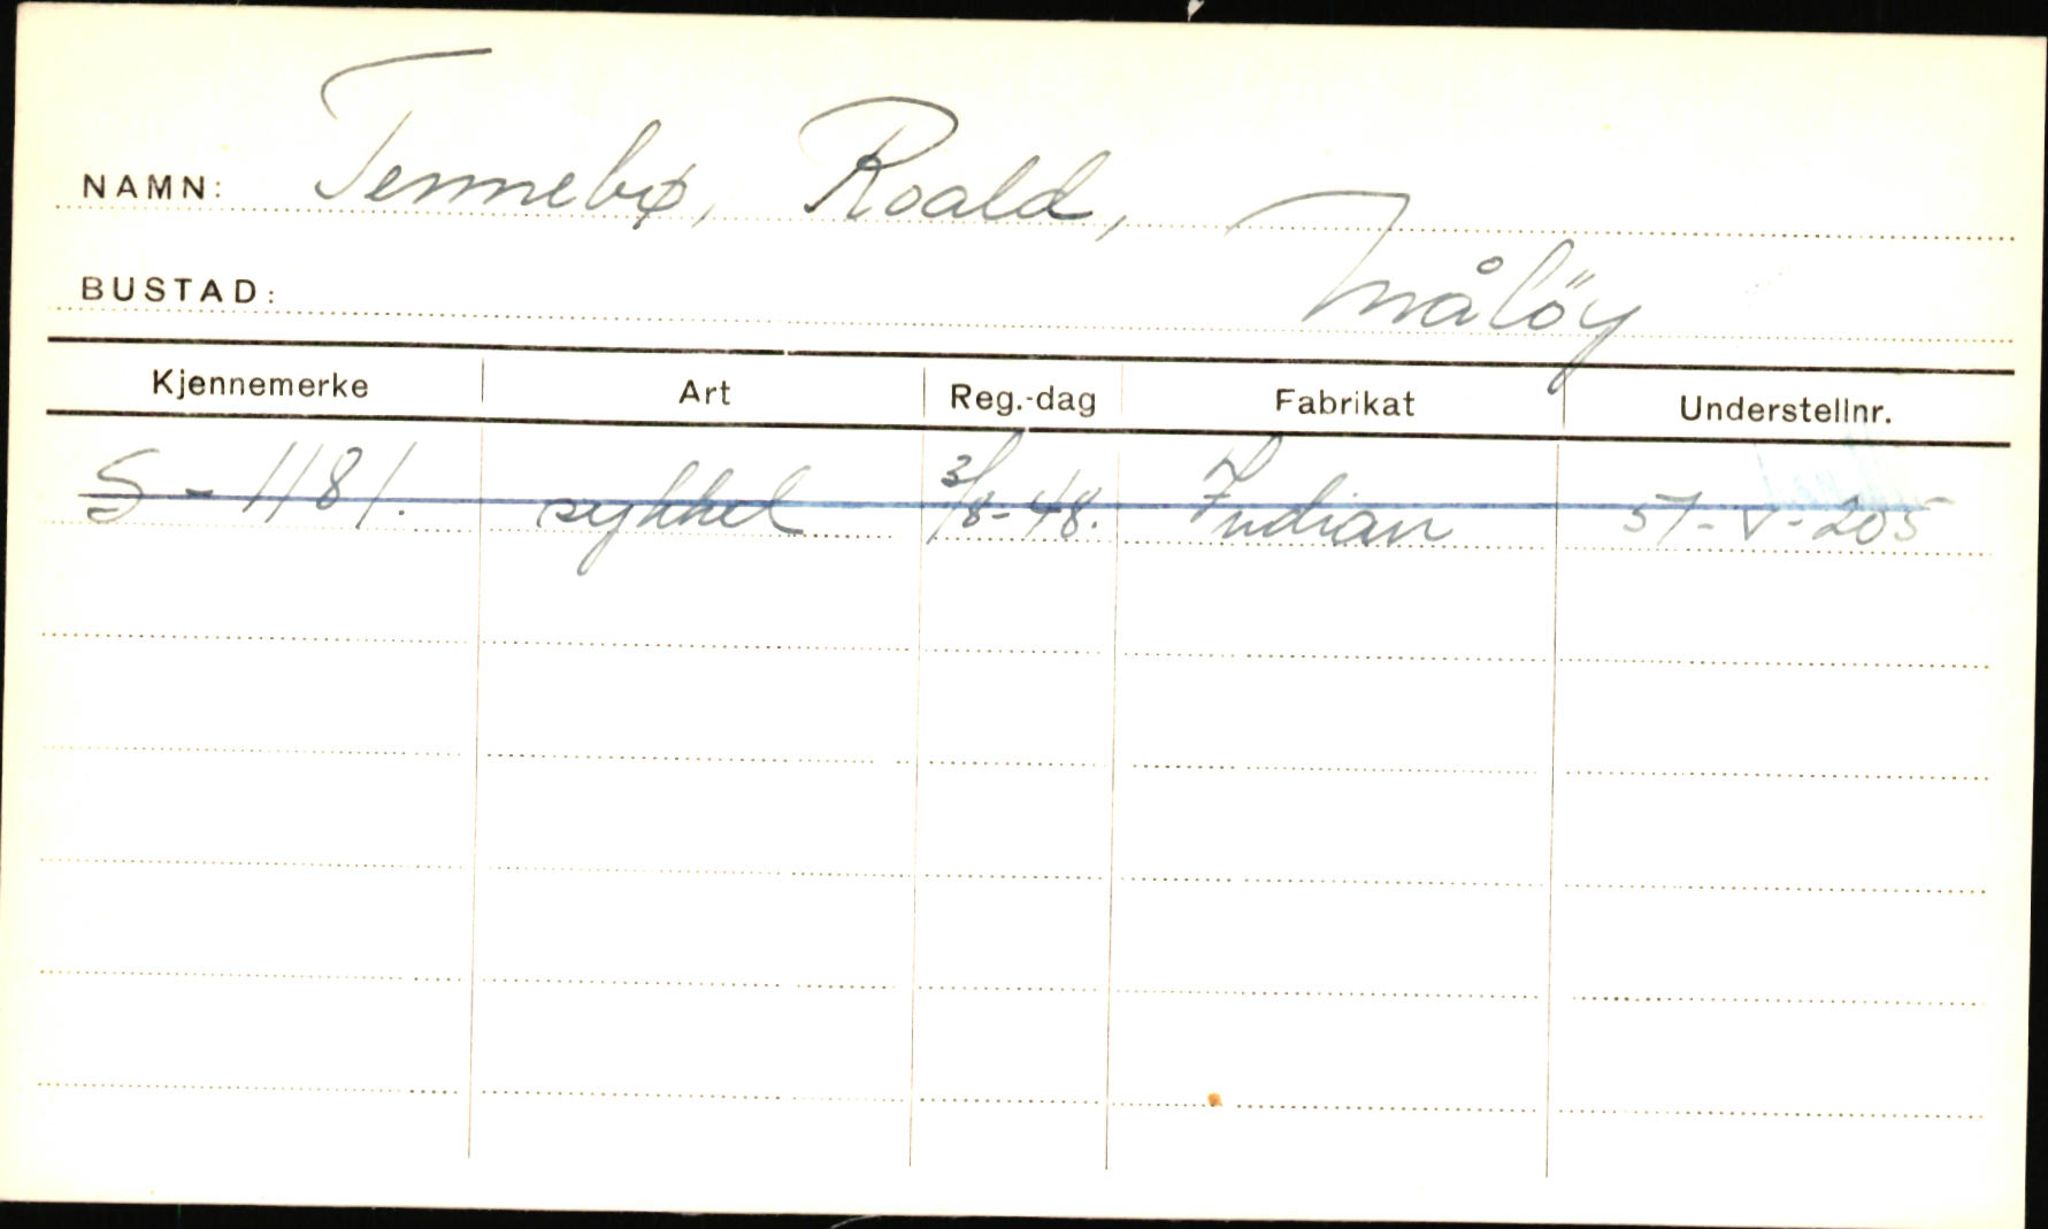 NAMN: Tennebø, Roald,
BUSTAD: Måløy
Kjennemerke Art Reg.-dag Fabrikat Understellnr.
S - 1181. sykkel 3/8-48. Indian 57-V-205